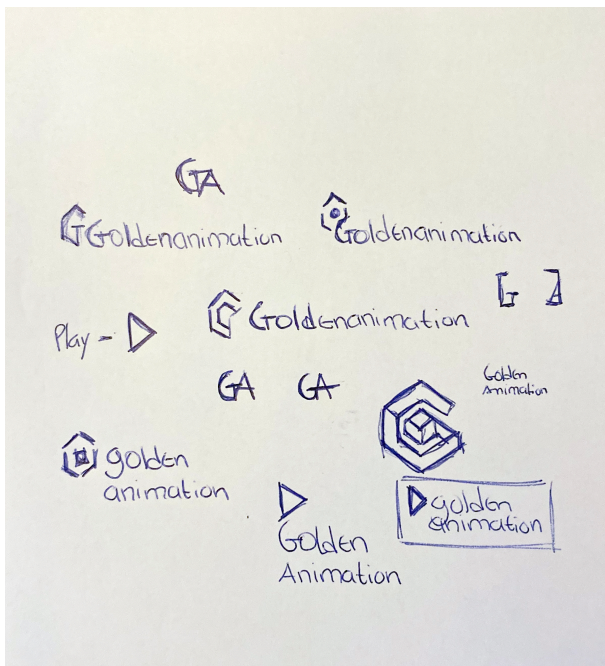 GA
GGoldenanimation
Goldenanimation
G
Goldenanimation
Play -
GA
GA
Golden
Animation
golden
animation
golden
animation
Golden
Animation